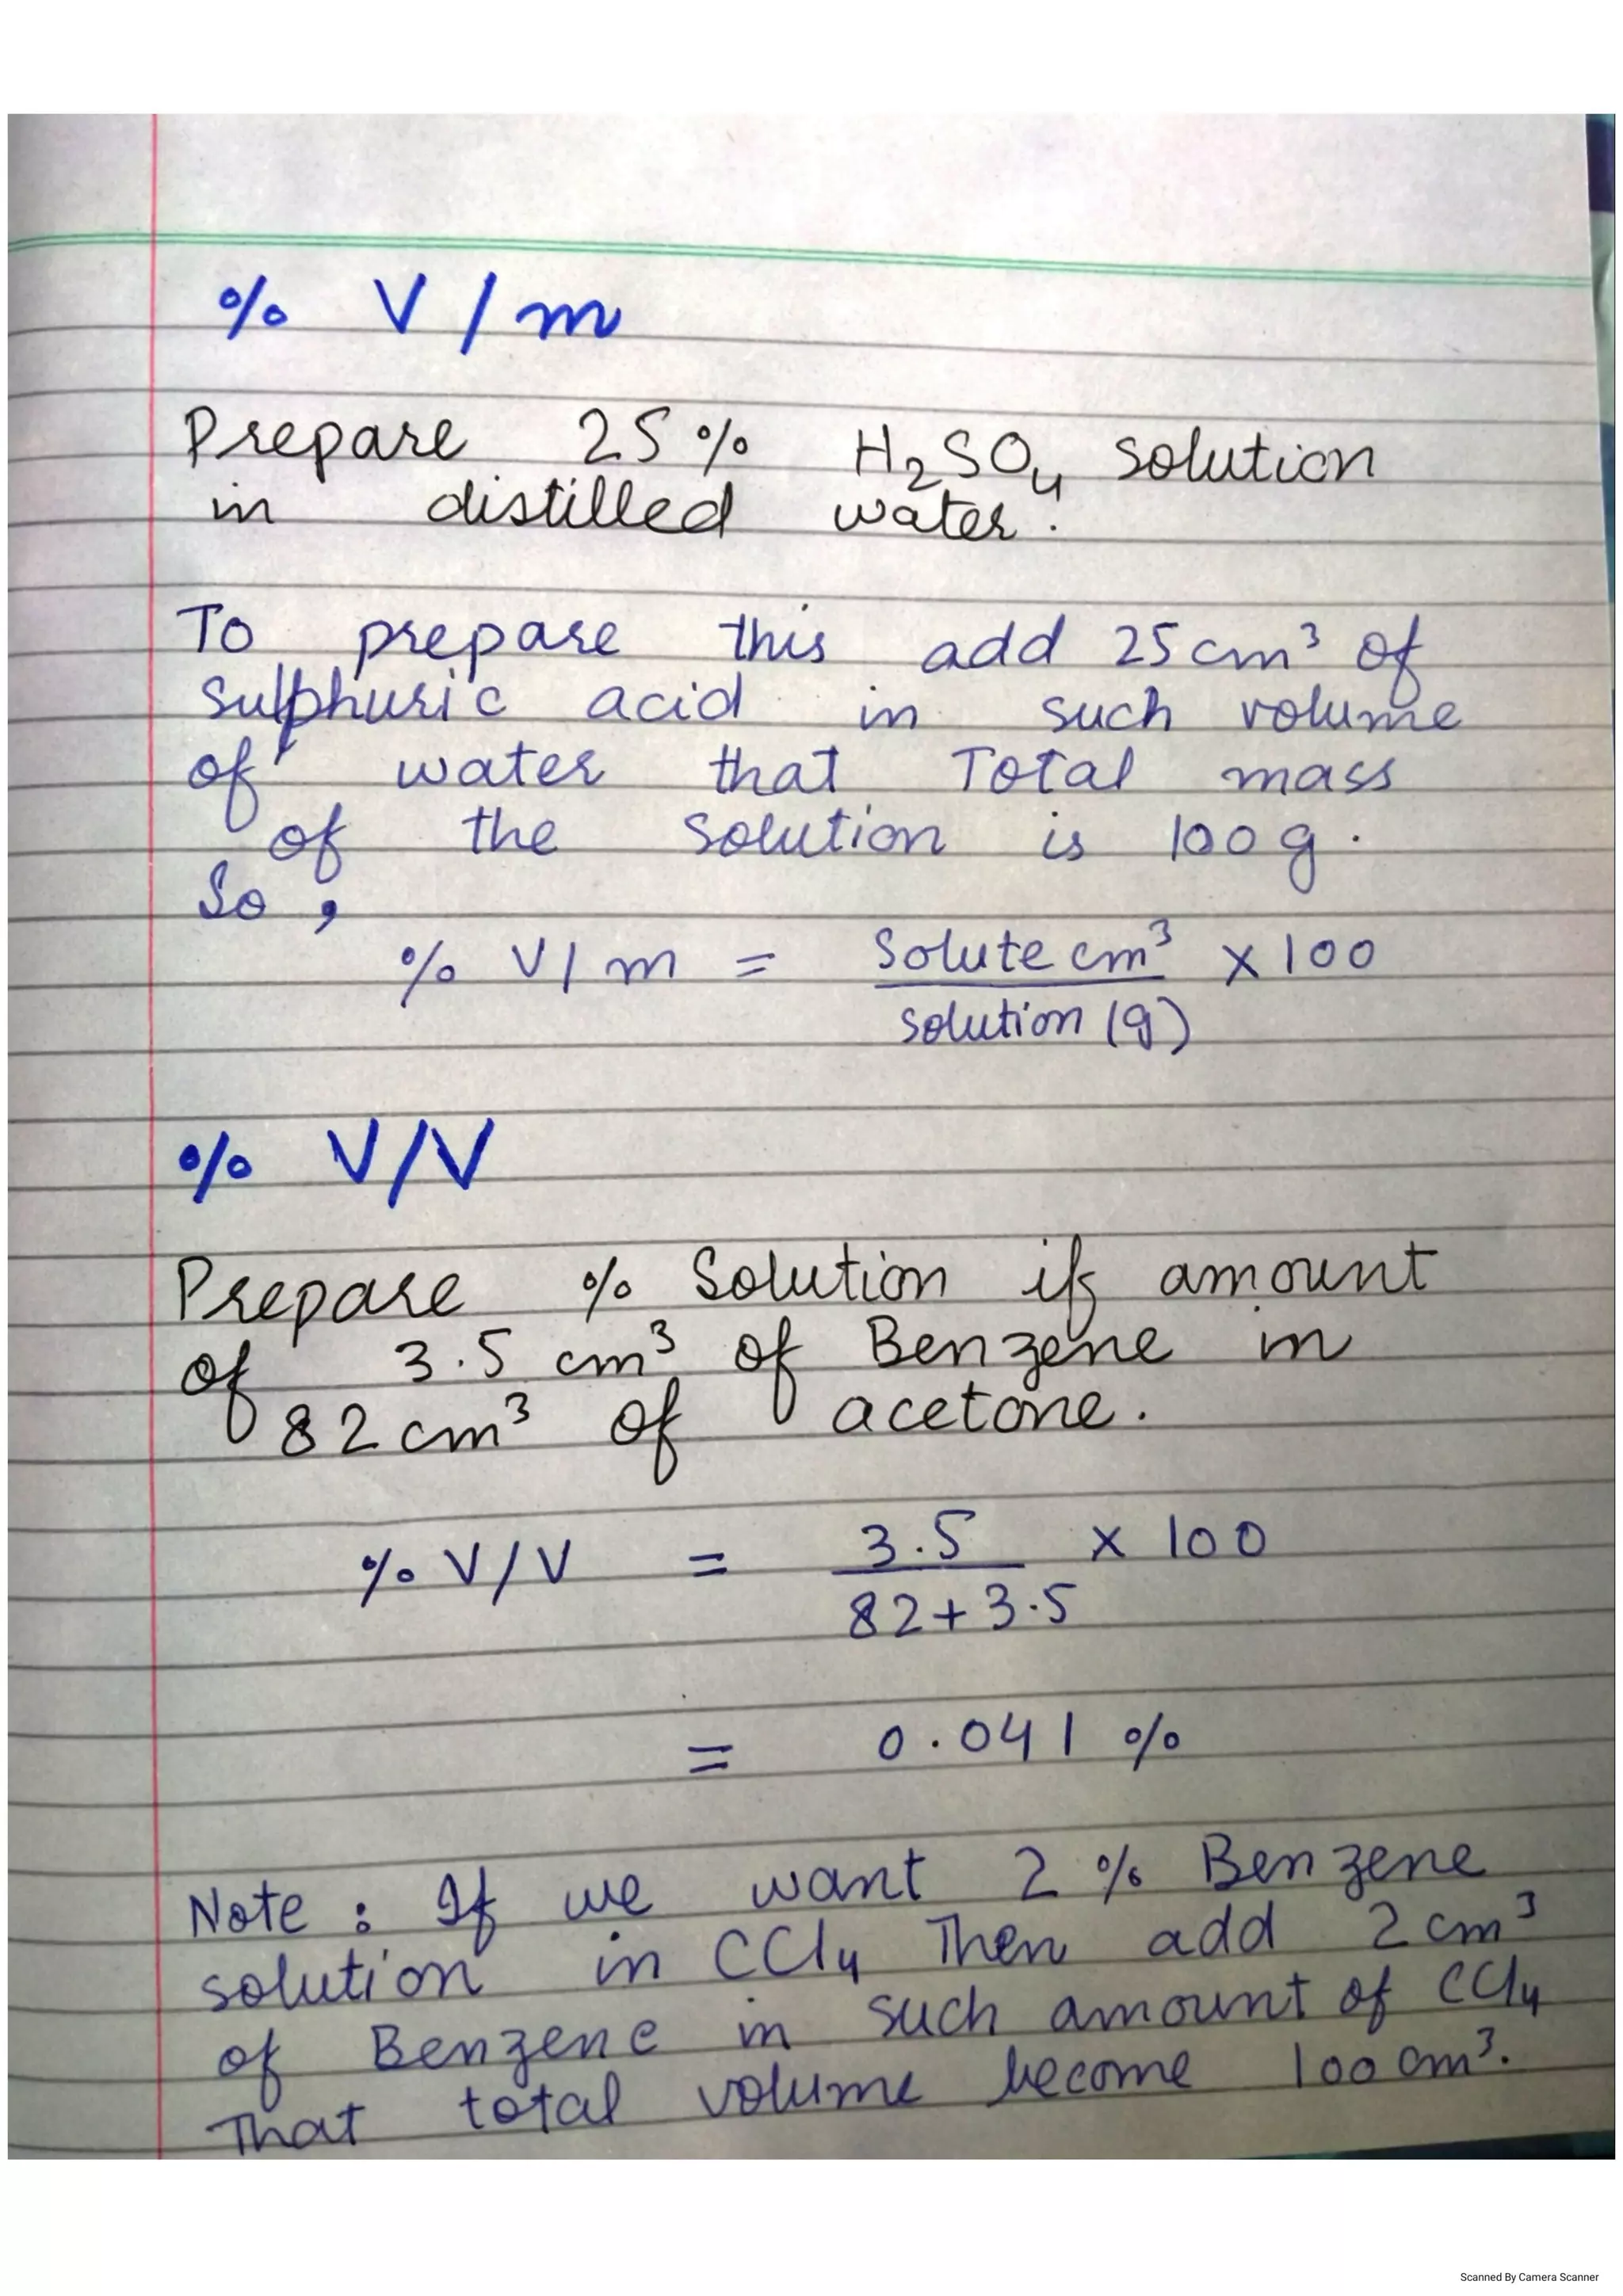 % V/m
Prepare 25% H₂SO₄ solution
in distilled water.
To prepare this add 25cm³ of
sulphuric acid in such volume
of water that Total mass
of the solution is 100g.
So,
% V/m = Solute cm³ / solution (g) × 100
% V/V
Prepare % Solution if amount
of 3.5 cm³ of Benzene in
82cm³ of acetone.
% V/V = 3.5 / 82+3.5 × 100
= 0.041 %
Note : If we want 2 % Benzene
solution in CCl₄ Then add 2cm³
of Benzene in such amount of CCl₄
That total volume become 100cm³.
Scanned By Camera Scanner